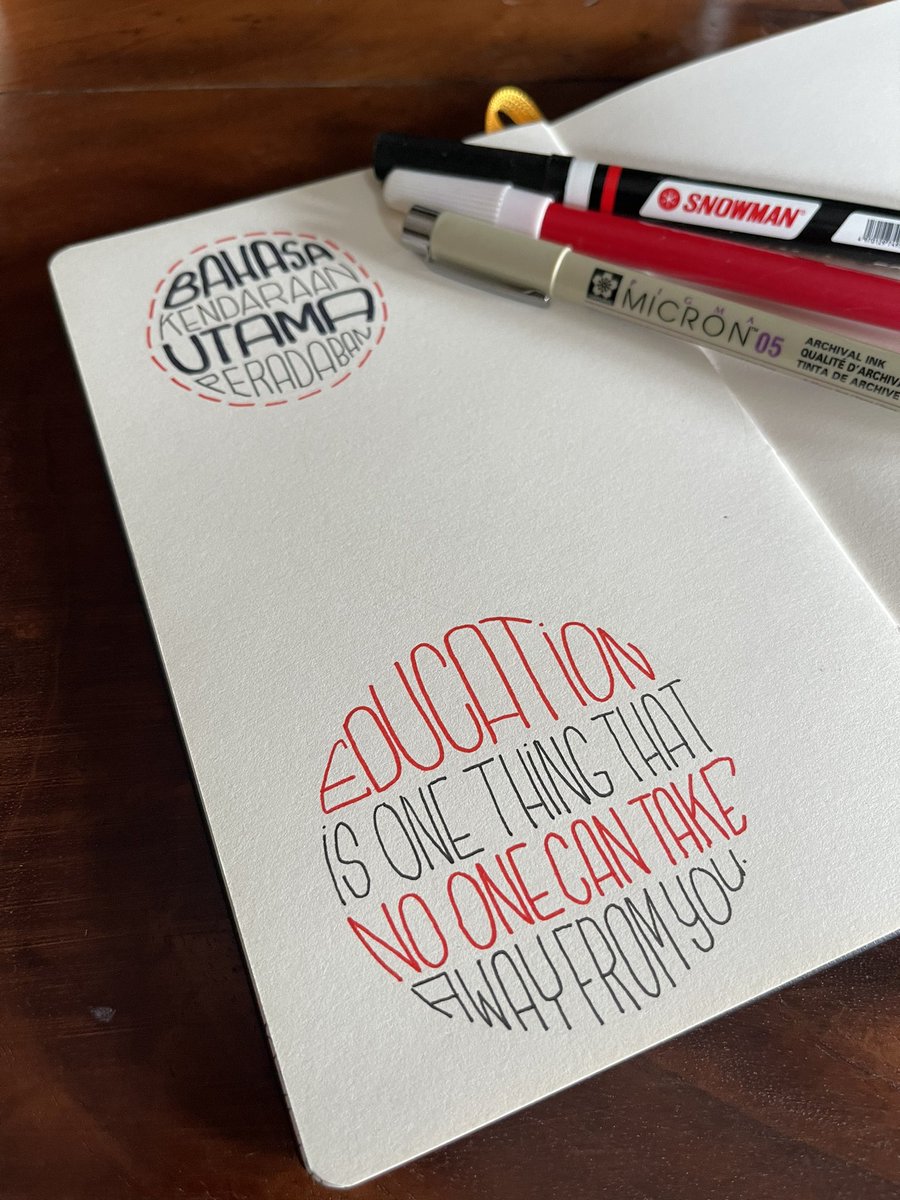 BAHASA
KENDARAAN
UTAMA
PERADABAN
SNOWMAN
PIGMA
MICRON™ 05
ARCHIVAL INK
QUALITÉ D'ARCHIVA
TINTA DE ARCHIVE
EDUCATiON
iS ONE THiNG THAT
NO ONE CAN TAKE
AWAY FROM YOU.